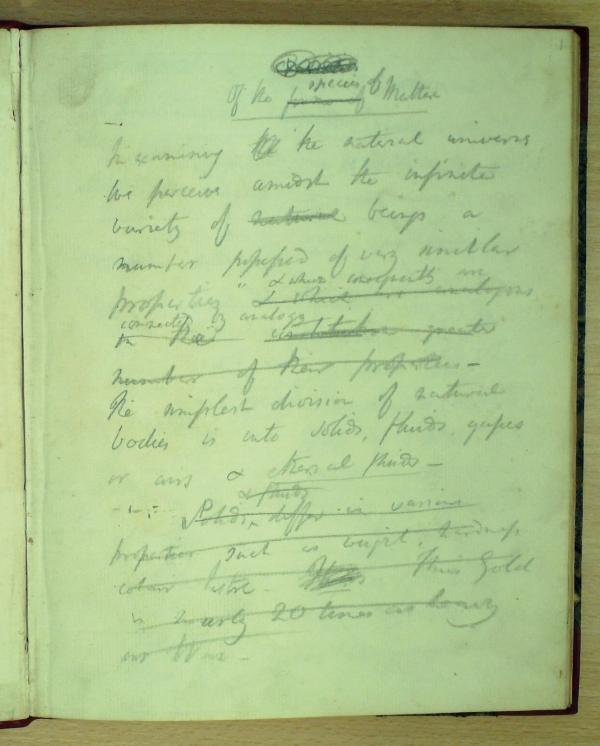 Of the species of Matter
In examining the natural universe
we perceive amidst the infinite
variety of natural beings a
number possessed of very similar
& which consequently are
properties & which are analogous
connected by analogy
greater
number of their properties -
The simplest division of natural
bodies is into solids, fluids, gases
or airs & etherial fluids -
& fluids
Solids differ in various
properties such as weight, hardness
colour lustre. Thus Gold
is nearly 20 times as heavy
as